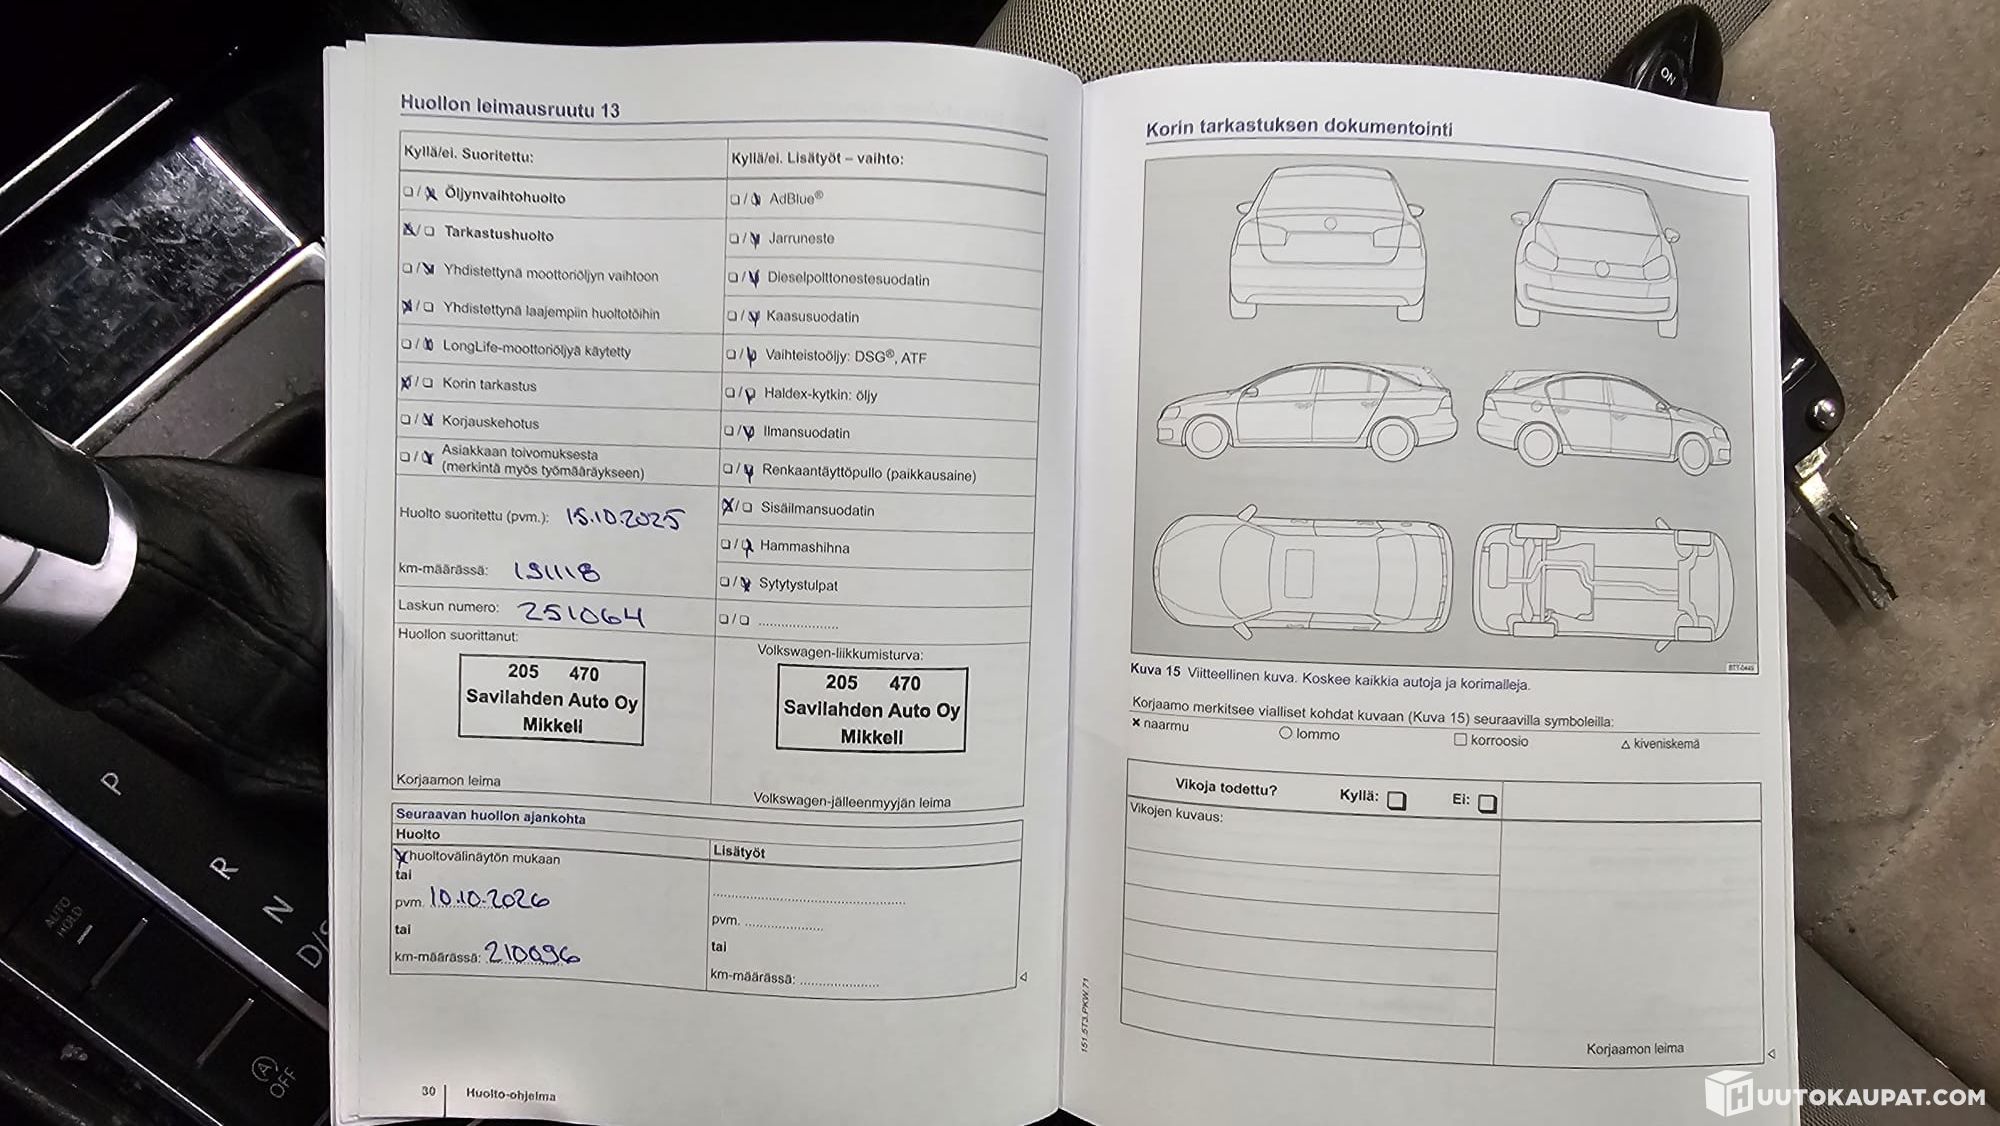 Huollon leimausruutu 13
Kyllä/ei. Suoritettu:
❏ / ❏ Öljynvaihtohuolto
❏ / ❏ Tarkastushuolto
❏ / ❏ Yhdistettynä moottoriöljyn vaihtoon
❏ / ❏ Yhdistettynä laajempiin huoltotöihin
❏ / ❏ LongLife-moottoriöljyä käytetty
❏ / ❏ Korin tarkastus
❏ / ❏ Korjauskehotus
❏ / ❏ Asiakkaan toivomuksesta
(merkintä myös työmääräykseen)
Huolto suoritettu (pvm.): 15.10.2025
km-määrässä: 191118
Laskun numero: 251064
Huollon suorittanut:
205 470
Savilahden Auto Oy
Mikkeli
Korjaamon leima
Kyllä/ei. Lisätyöt – vaihto:
❏ / ❏ AdBlue®
❏ / ❏ Jarruneste
❏ / ❏ Dieselpolttonestesuodatin
❏ / ❏ Kaasusuodatin
❏ / ❏ Vaihteistoöljy: DSG®, ATF
❏ / ❏ Haldex-kytkin: öljy
❏ / ❏ Ilmansuodatin
❏ / ❏ Renkaantäyttöpullo (paikkausaine)
❏ / ❏ Sisäilmansuodatin
❏ / ❏ Hammashihna
❏ / ❏ Sytytystulpat
❏ / ❏ ....................
Volkswagen-liikkumisturva:
205 470
Savilahden Auto Oy
Mikkeli
Volkswagen-jälleenmyyjän leima
Seuraavan huollon ajankohta
Huolto
huoltovälinäytön mukaan
tai
pvm. 10.10.2026
tai
km-määrässä: 210096
Lisätyöt
pvm. ....................
tai
km-määrässä: ....................
30 Huolto-ohjelma
Korin tarkastuksen dokumentointi
BTT-0449
Kuva 15 Viitteellinen kuva. Koskee kaikkia autoja ja korimalleja.
Korjaamo merkitsee vialliset kohdat kuvaan (Kuva 15) seuraavilla symboleilla:
× naarmu ○ lommo □ korroosio △ kiveniskemä
Vikoja todettu? Kyllä: ❏ Ei: ❏
Vikojen kuvaus:
Korjaamon leima
151.5T3.PKW.71
P
R
N
D/S
AUTO
HOLD
(A)
OFF
ON
HUUTOKAUPAT.COM